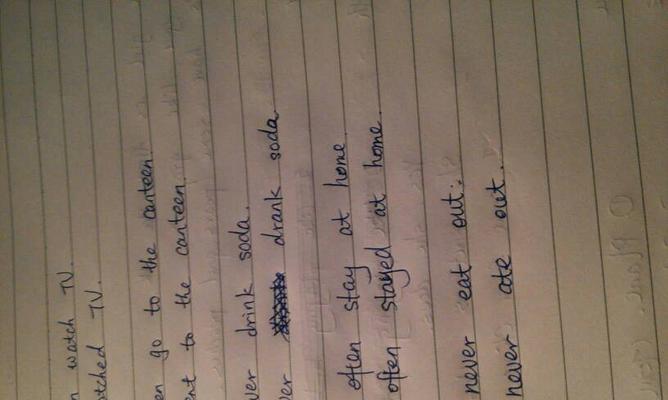 watch TV.
TV.
go to the canteen.
to the canteen.
drink soda.
drank soda.
often stay at home.
often stayed at home.
never eat out.
never ate out.